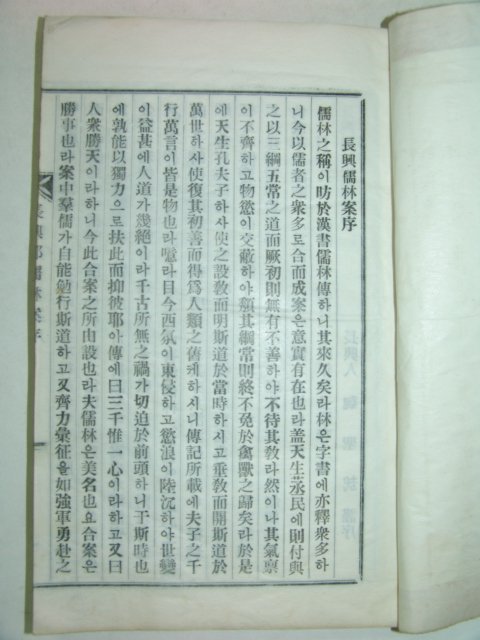 長興儒林案序
儒林之稱이昉於漢書儒林傳하니其來久矣라林은字書에亦釋衆多하
니今以儒者之衆多로合而成案은意實有在也라盖天生烝民에則付與
之以三綱五常之道而厥初則無有不善하야不待其敎라然이나其氣禀
이不齊하고物慾이交蔽하야頹其綱常則終不免於禽獸之歸矣라於是
에天生孔夫子하사使之設敎而明斯道於當時하시고垂敎而開斯道於
萬世하사使復其初善而得爲人類之舊케하시니傳記所載에夫子之千
行萬言이皆是物也라噫라目今西氛이東侵하고慾浪이陸沉하야世變
이益甚에人道가幾絶이라千古所無之禍가切迫於前頭하니于斯時也
에孰能以獨力으로扶此而抑彼耶아傳에曰三千惟一心이라하고又曰
人衆勝天이라하니今此合案之所由設也라夫儒林은美名也요合案은
勝事也라案中羣儒가自能勉行斯道하고又齊力彙征을如強軍勇赴之
長興郡儒林案序